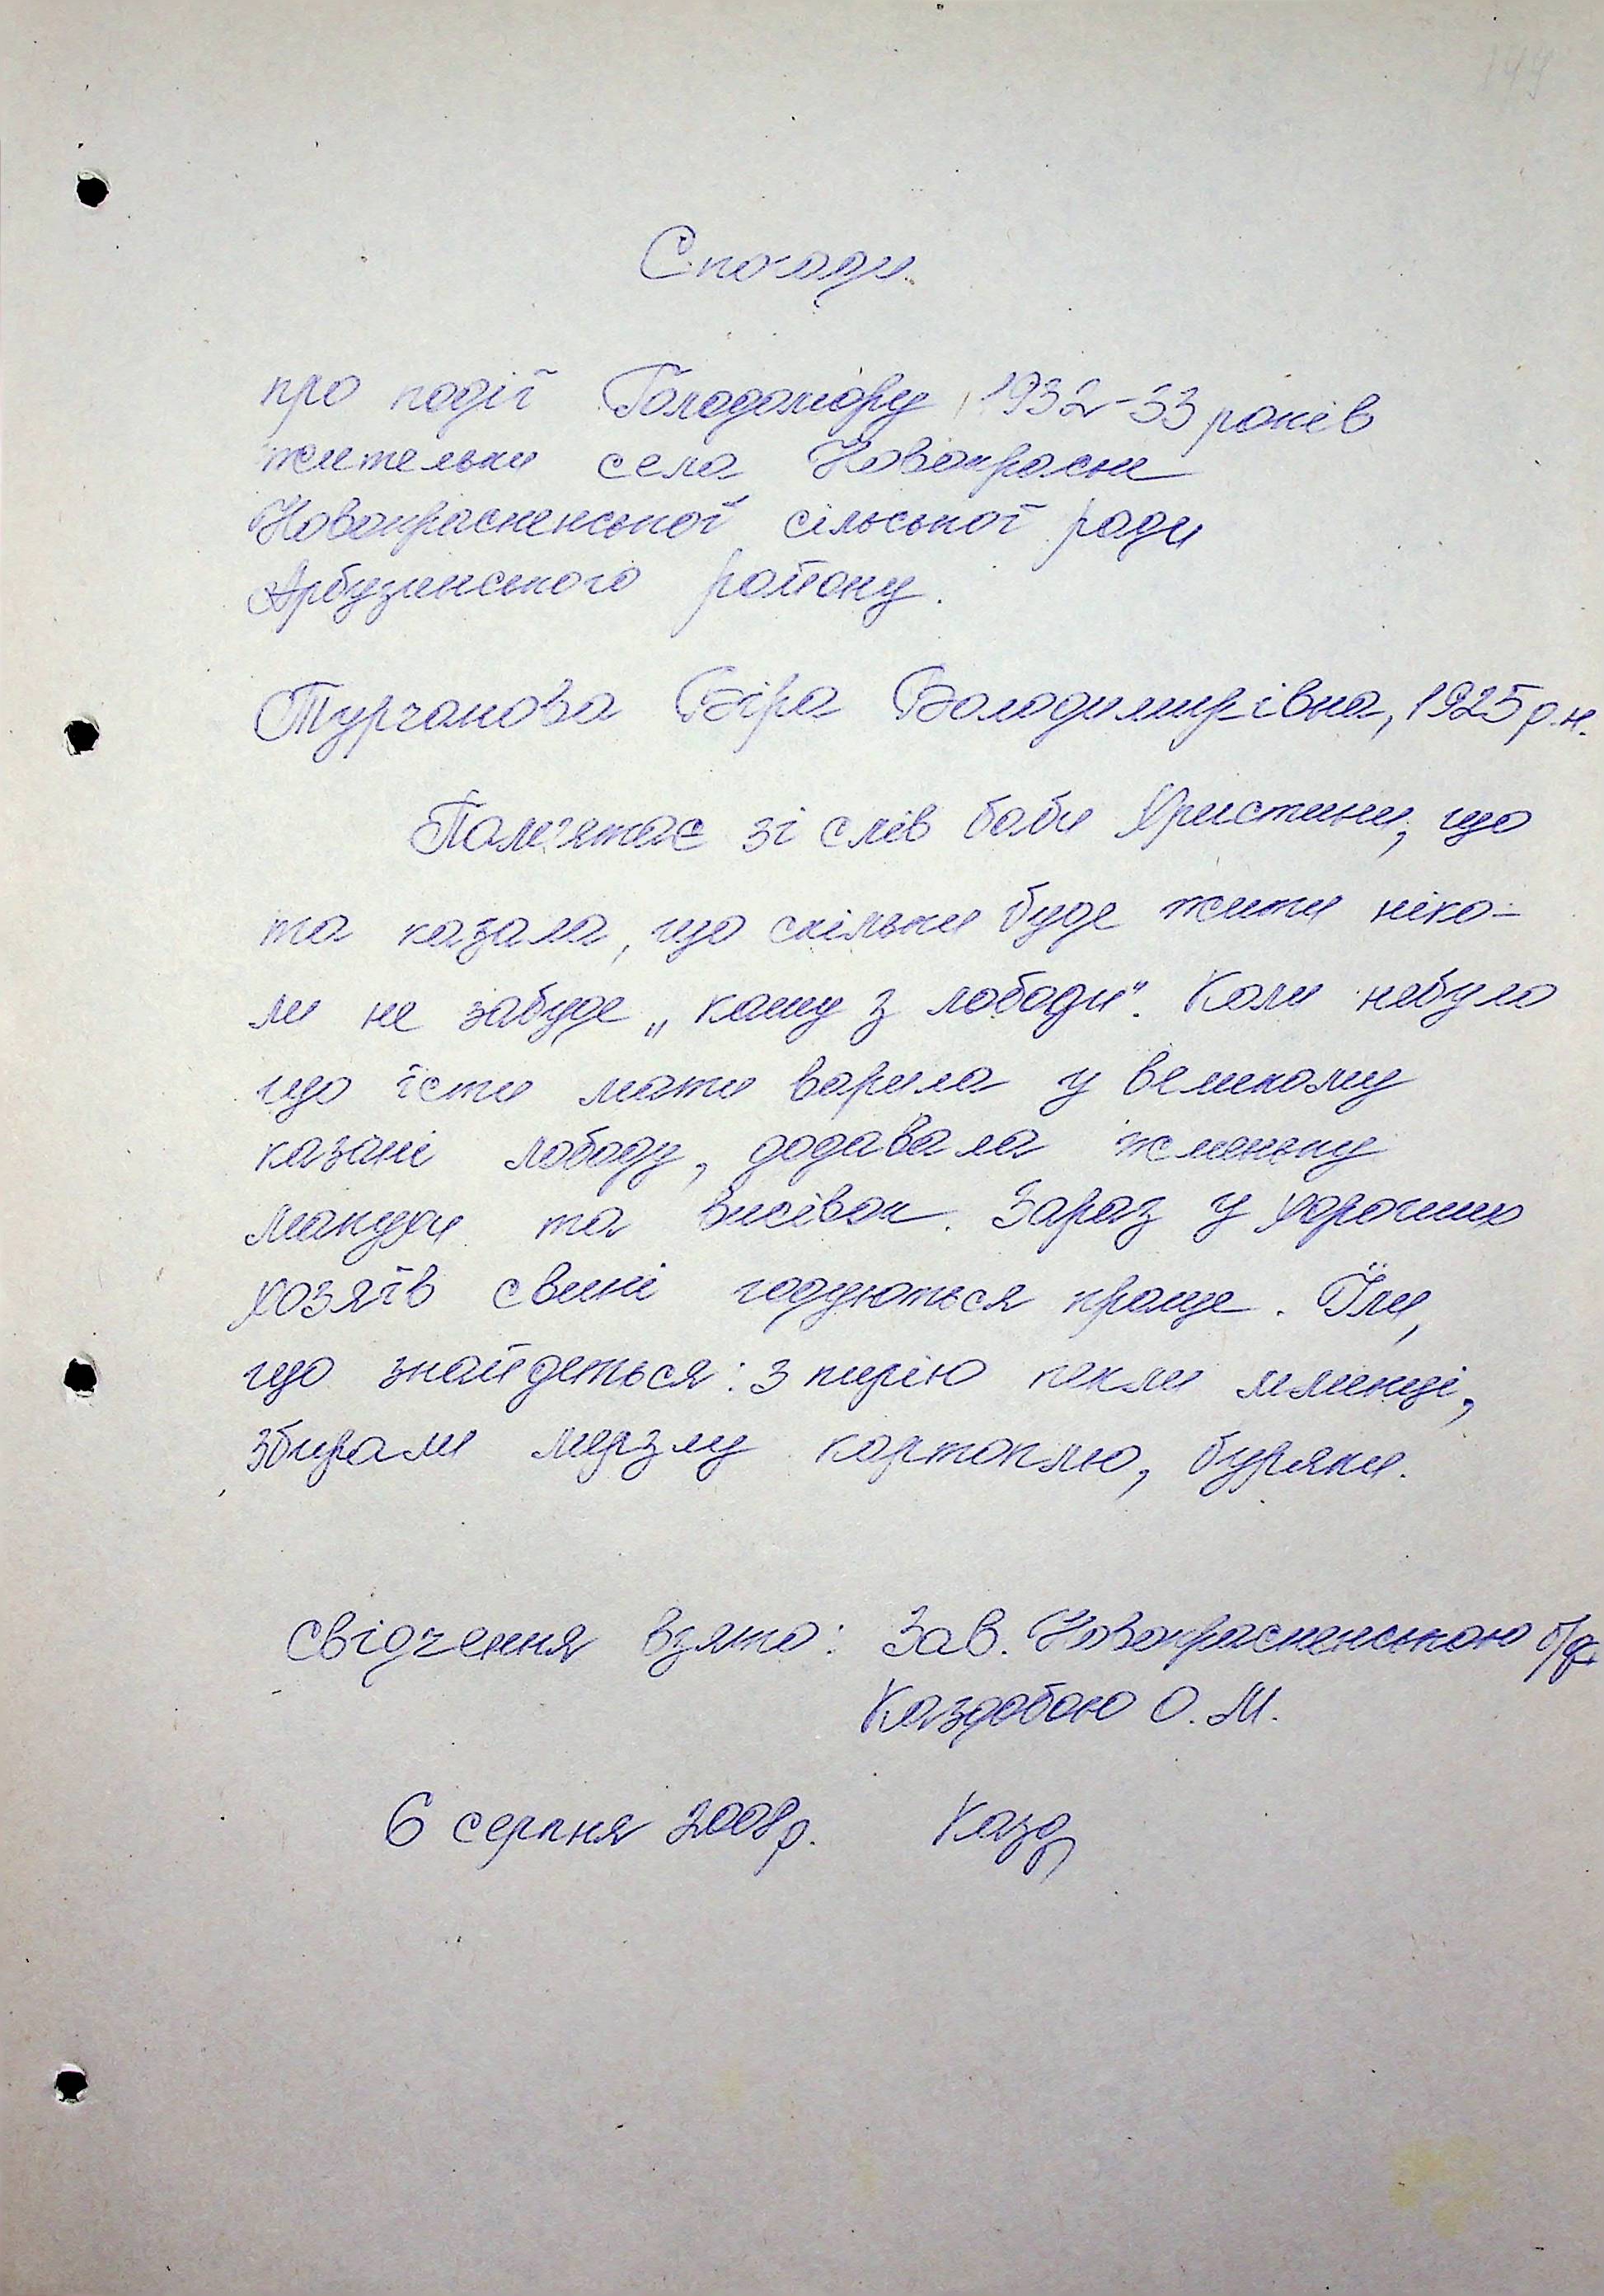 149
Спогади
про події Голодомору 1932-33 років
жительки села Новокрасне
Новокрасненської сільської ради
Арбузинського району.
Турчанова Віра Володимирівна, 1925 р.н.
Пам'ятає зі слів баби Христини, що
та казала, що скільки буде жити ніко-
ли не забуде „кашу з лободи". Коли небуло
що їсти мати варила у великому
казані лободу, додавала жменьку
макухи та висівок. Зараз у хороших
хозяїв свині годуються краще. Їли,
що знайдеться: з пирію пекли млинці,
збирали мерзлу картоплю, буряки.
Свідчення взято: Зав. Новокрасненською б/ф
Каздобою О. М.
6 серпня 2008 р. Казд